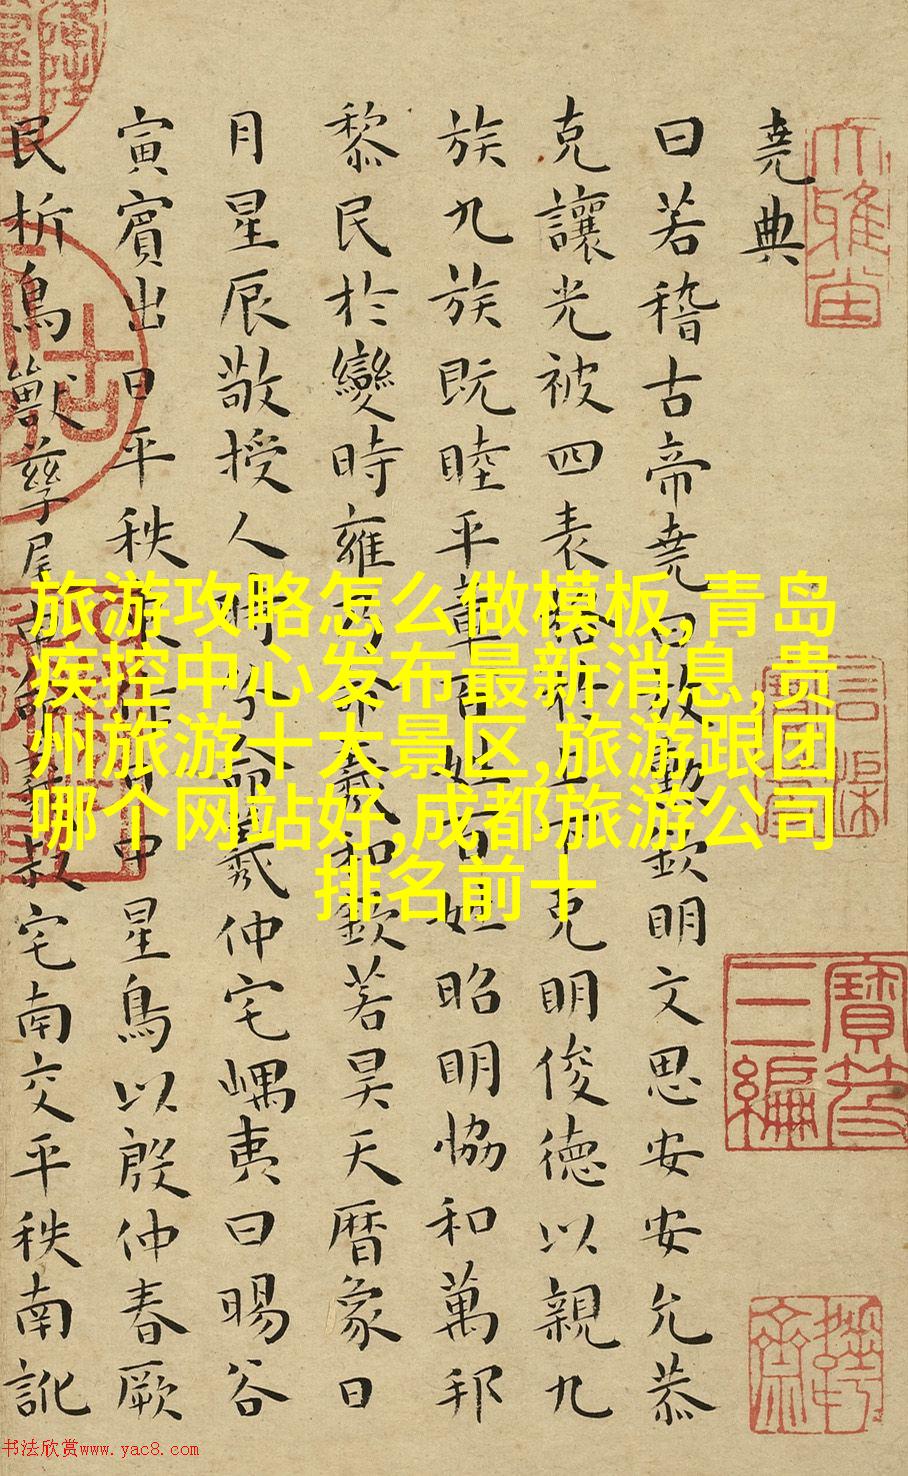 堯典
曰若稽古帝堯曰放勳欽明文思安安允恭
克讓光被四表格於上下克明俊德以親九
族九族既睦平章百姓百姓昭明恊和萬邦
黎民於變時雍乃命羲和欽若昊天曆象日
月星辰敬授人時分命羲仲宅嵎夷曰暘谷
寅賓出日平秩東作日中星鳥以殷仲春厥
民析鳥獸孳尾申命羲叔宅南交平秩南訛
寶笈三編
旅游攻略怎么做模板,青岛
疾控中心发布最新消息,贵
州旅游十大景区,旅游跟团
哪个网站好,成都旅游公司
排名前十
书法欣赏www.yac8.com